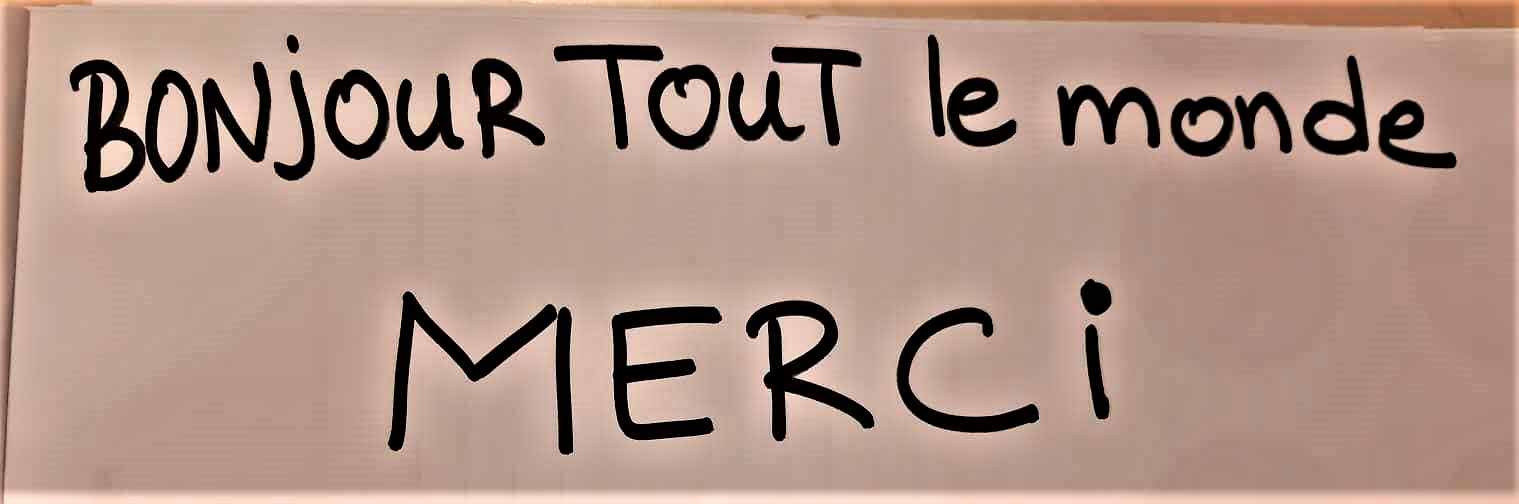 BONjOUR TOUT le monde
MERCi